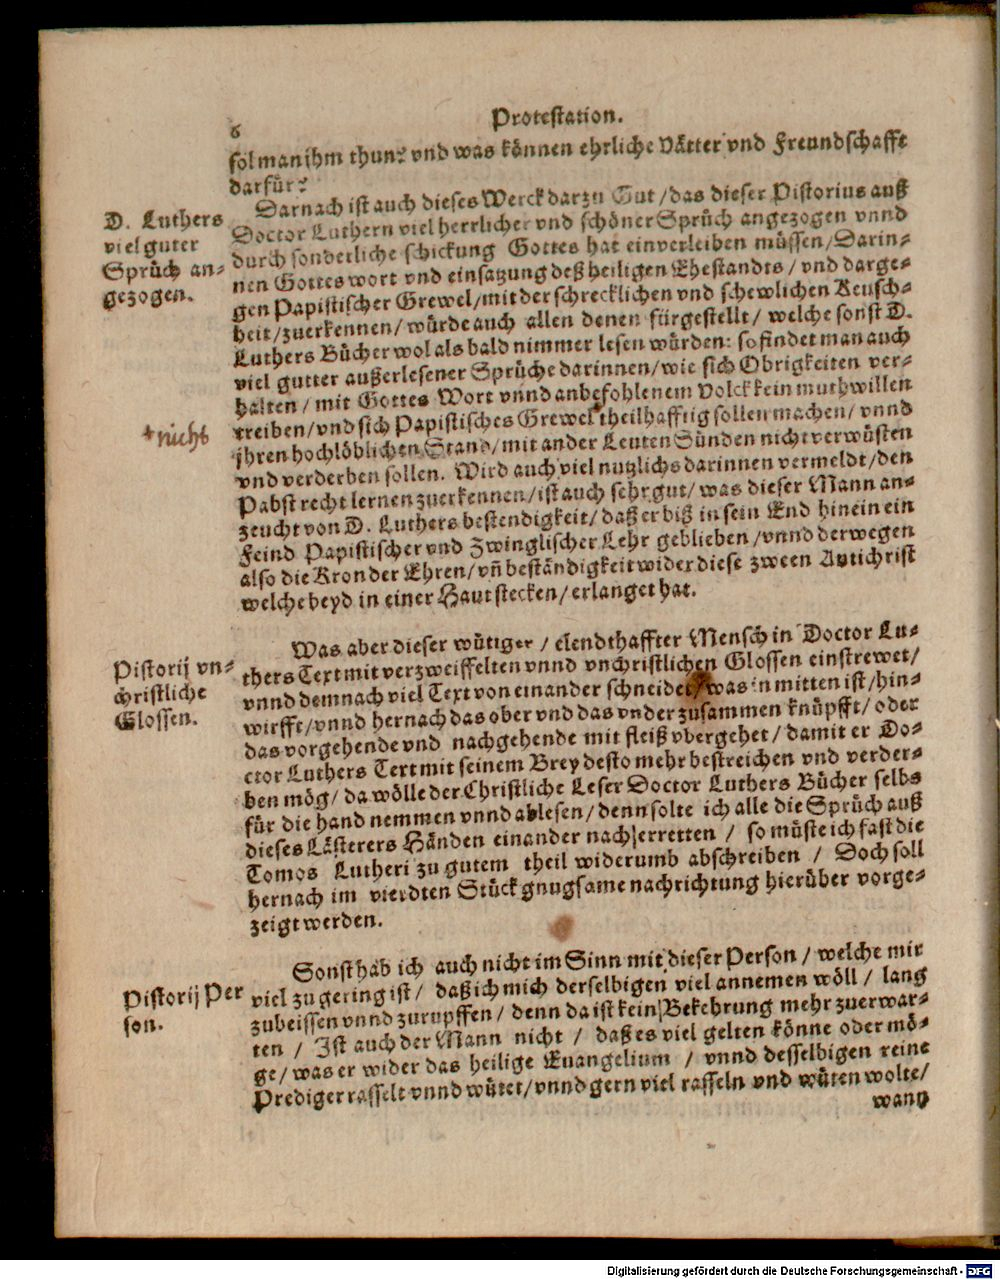 6
Protestation.
sol man jhm thun? vnd was können ehrliche Vätter vnd Freundschafft
darfür?
Darnach ist auch dieses Werck darzu Gut / das dieser Pistorius auß
Doctor Luthern viel herrlicher vnd schöner Sprüch angezogen vnnd
durch sonderliche schickung Gottes hat einverleiben müssen / Darin-
nen Gottes wort vnd einsatzung deß heiligen Ehestandts / vnd darge-
gen Papistischer Grewel / mit der schrecklichen vnd schewlichen Keusch-
heit / zuerkennen / würde auch allen denen fürgestellt / welche sonst D.
Luthers Bücher wol als bald nimmer lesen würden: so findet man auch
viel gutter außerlesener Sprüche darinnen / wie sich Obrigkeiten ver-
halten / mit Gottes Wort vnnd anbefohlenem Volck kein muthwillen
treiben / vnd sich Papistisches Grewel theilhafftig sollen machen / vnnd
jhren hochlöblichen Stand / mit ander Leuten Sünden nicht verwüsten
vnd verderben sollen. Wird auch viel nutzlichs darinnen vermeldt / den
Pabst recht lernen zuerkennen / ist auch sehr gut / was dieser Mann an-
zeucht von D. Luthers bestendigkeit / daß er biß in sein End hinein ein
Feind Papistischer vnd Zwinglischer Lehr geblieben / vnnd derwegen
also die Kron der Ehren / vñ beständigkeit wider diese zween Antichrist
welche beyd in einer Haut stecken / erlanget hat.
D. Luthers
viel guter
Sprüch an-
gezogen.
+ nicht
Was aber dieser wütiger / elendthaffter Mensch in Doctor Lu-
thers Text mit verzweiffelten vnnd vnchristlichen Glossen einstrewet /
vnnd demnach viel Text von einander schneidet / was in mitten ist / hin-
wirfft / vnnd hernach das ober vnd das vnder zusammen knüpfft / oder
das vorgehende vnd nachgehende mit fleiß vbergehet / damit er Do-
ctor Luthers Text mit seinem Brey desto mehr bestreichen vnd verder-
ben mög / da wölle der Christliche Leser Doctor Luthers Bücher selbs
für die hand nemmen vnnd ablesen / denn solte ich alle die Sprüch auß
dieses Lästerers Händen einander nach erretten / so müste ich fast die
Tomos Lutheri zu gutem theil widerumb abschreiben / Doch soll
hernach im vierdten Stück gnugsame nachrichtung hierüber vorge-
zeigt werden.
Pistorij vn-
christliche
Glossen.
Sonst hab ich auch nicht im Sinn mit dieser Person / welche mir
viel zu gering ist / daß ich mich derselbigen viel annemen wöll / lang
zubeissen vnnd zurupffen / denn da ist kein Bekehrung mehr zuerwar-
ten / Ist auch der Mann nicht / daß es viel gelten könne oder mö-
ge / was er wider das heilige Euangelium / vnnd desselbigen reine
Prediger rasselt vnnd wütet / vnnd gern viel rasseln vnd wüten wolte /
wann
Pistorij Per
son.
Digitalisierung gefördert durch die Deutsche Forschungsgemeinschaft - DFG